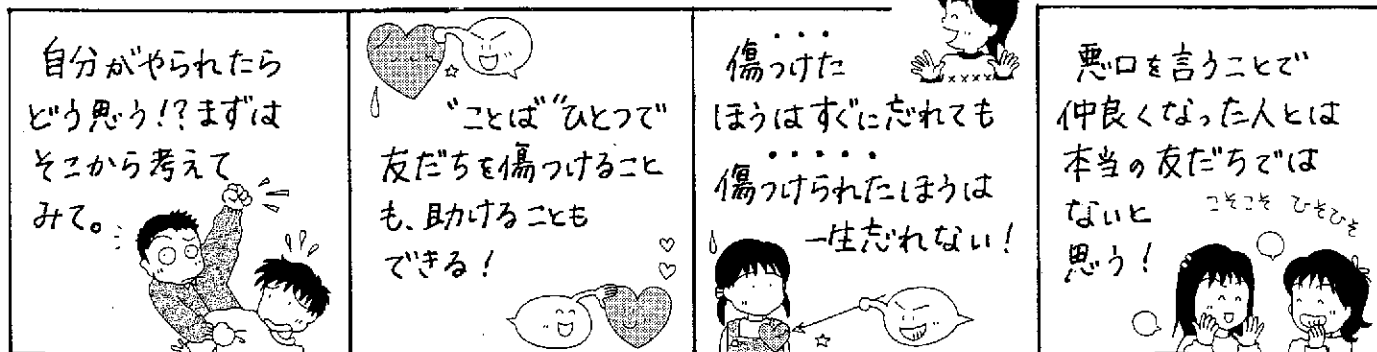 自分がやられたら
どう思う!?まずは
そこから考えて
みて。
"ことば"ひとつで
友だちを傷つけること
も、助けることも
できる!
傷つけた
ほうはすぐに忘れても
傷つけられたほうは
一生忘れない!
××××
悪口を言うことで
仲良くなった人とは
本当の友だちでは
ないと
思う!
こそこそ ひそひそ